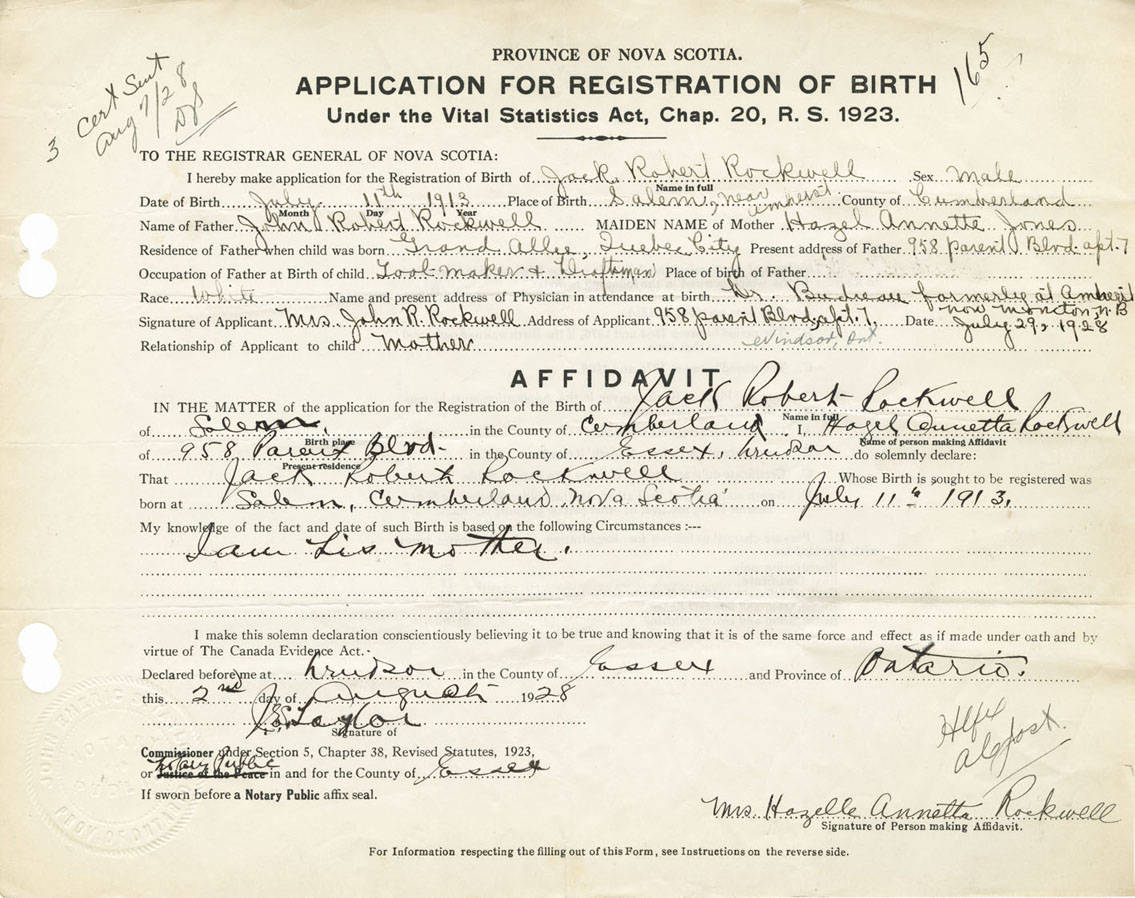 PROVINCE OF NOVA SCOTIA.
165
APPLICATION FOR REGISTRATION OF BIRTH
Under the Vital Statistics Act, Chap. 20, R. S. 1923.
3 Cert Sent
Aug 7/28
TO THE REGISTRAR GENERAL OF NOVA SCOTIA:
I hereby make application for the Registration of Birth of Jack Robert Rockwell Sex Male
Name in full
Date of Birth July 11th 1913 Place of Birth Salem, near Amherst County of Cumberland
Month Day Year
Name of Father John Robert Rockwell MAIDEN NAME of Mother Hazel Annetta Jones
Residence of Father when child was born Grand Allye, Quebec City Present address of Father 958 parent Blvd. apt. 7
Occupation of Father at Birth of child Tool maker & Draftsman Place of birth of Father
Race White Name and present address of Physician in attendance at birth Dr. Budreau formerley at Amherst
now moncton N.B
Signature of Applicant Mrs. John R. Rockwell Address of Applicant 958 parent Blvd, apt. 7, Date July 29, 1928
Windsor, Ont.
Relationship of Applicant to child Mother
AFFIDAVIT
IN THE MATTER of the application for the Registration of the Birth of Jack Robert Rockwell
Name in full
of Salem, in the County of Cumberland I, Hazel Annetta Rockwell
Birth place Name of person making Affidavit
of 958 Parent Blvd. in the County of Essex, Windsor do solemnly declare:
Present residence
That Jack Robert Rockwell Whose Birth is sought to be registered was
born at Salem, Cumberland Nova Scotia on July 11th 1913.
My knowledge of the fact and date of such Birth is based on the following Circumstances :---
I am his mother.
I make this solemn declaration conscientiously believing it to be true and knowing that it is of the same force and effect as if made under oath and by
virtue of The Canada Evidence Act.
Declared before me at Windsor in the County of Essex and Province of Ontario.
this 2nd day of August 1928
Taylor
Signature of
Commissioner under Section 5, Chapter 38, Revised Statutes, 1923,
Notary Public
or Justice of the Peace in and for the County of Essex
If sworn before a Notary Public affix seal.
Mrs. Hazelle Annetta Rockwell
Signature of Person making Affidavit.
For Information respecting the filling out of this Form, see Instructions on the reverse side.